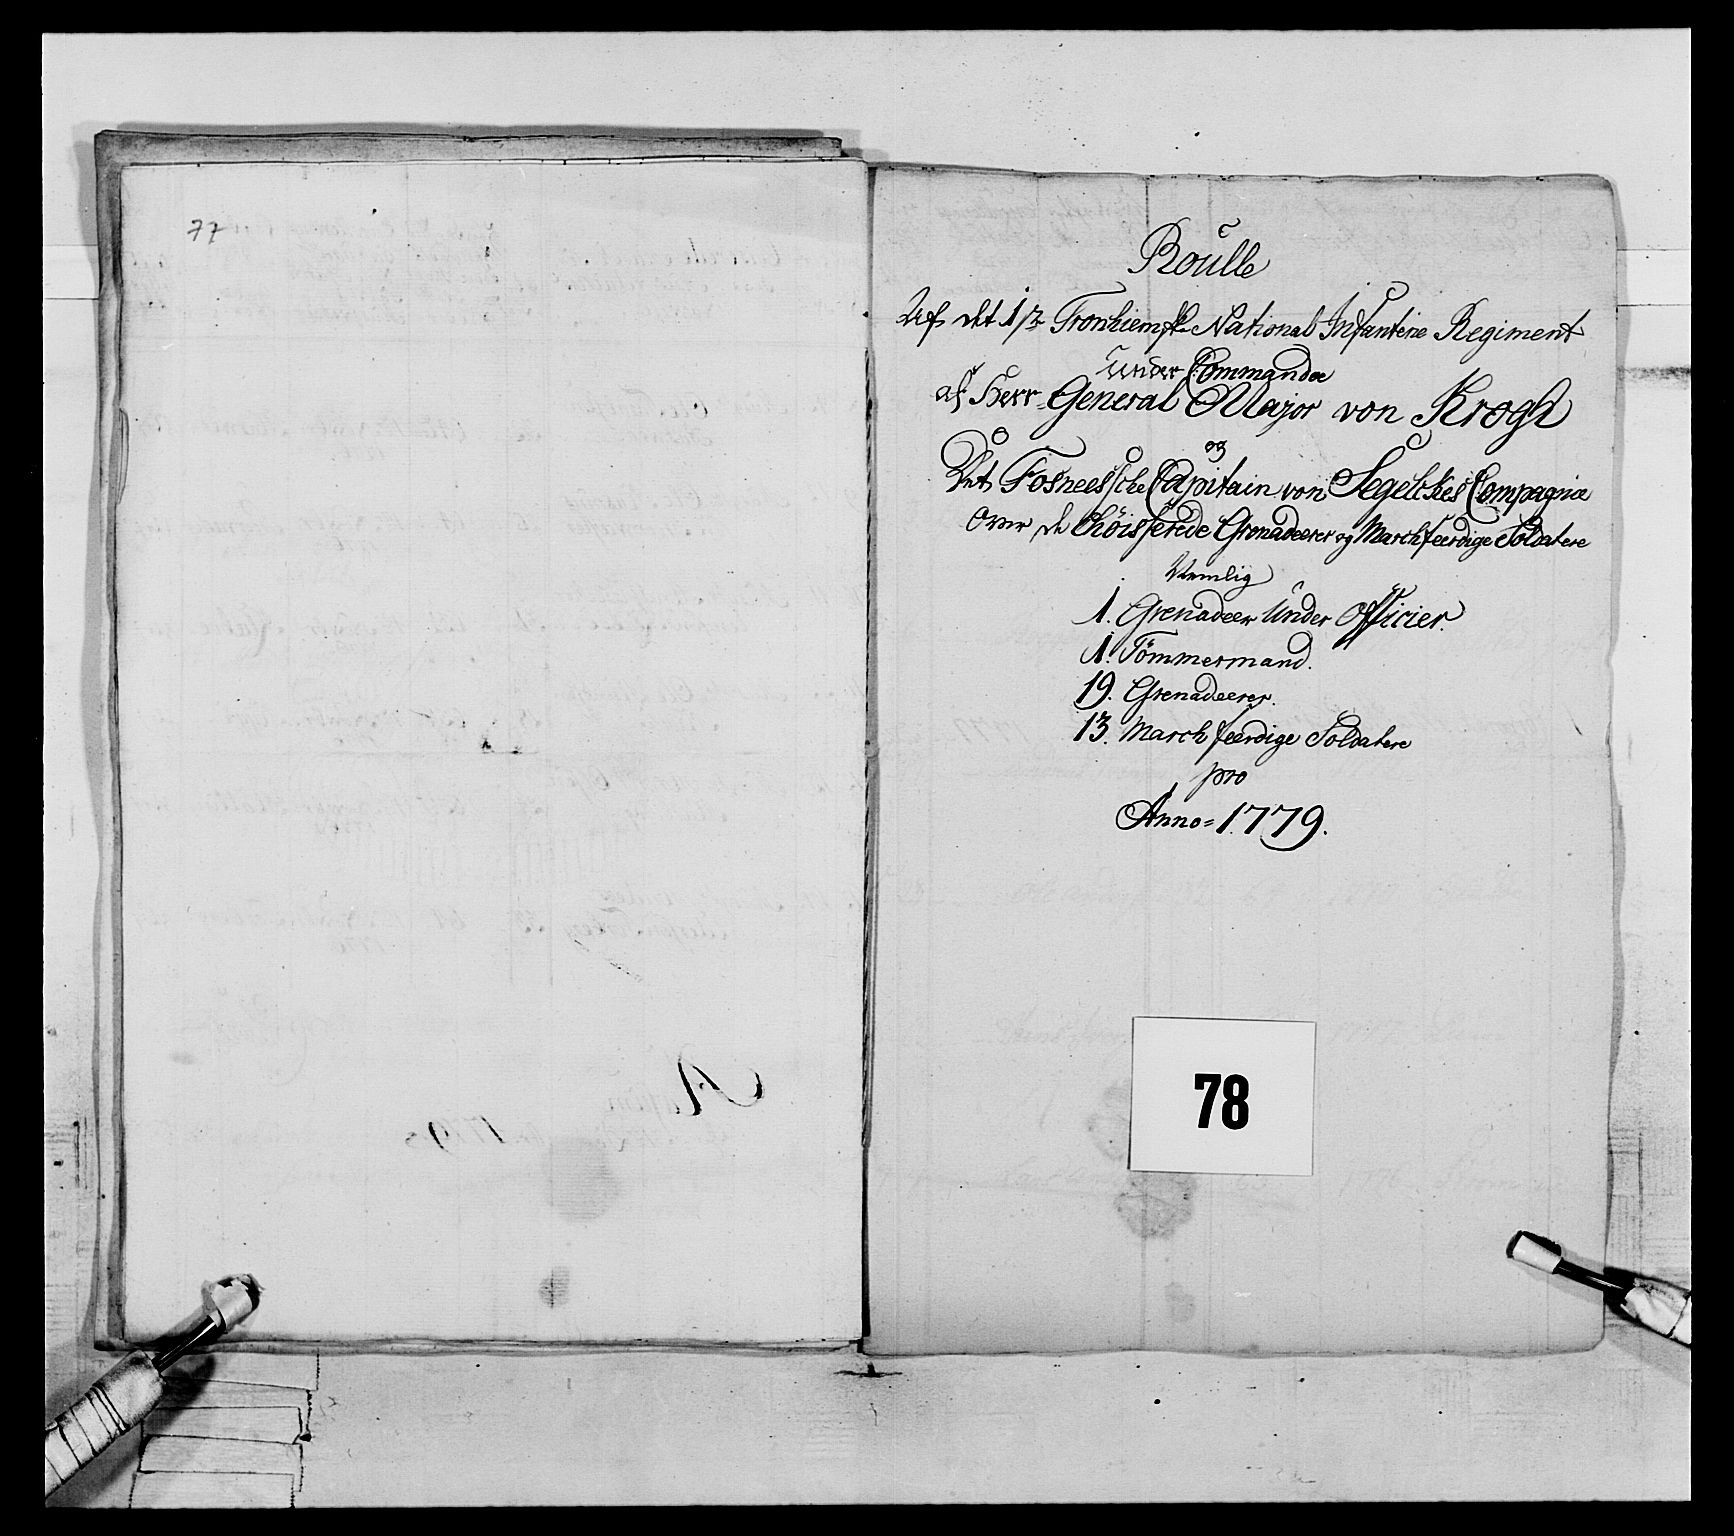 77
Roulle
Af det 1ste Tronhiemske National Infanterie Regiment
Under Commando
af Herr General Major von Krogh
og
Det Fosneessche Capitain von Segelckes Compagnie
Over de Enroisserede Grenadeerer og Marchfeerdige Soldatere
Nemlig
1. Grenadeer Under Officier.
1. Tömmermand.
19. Grenadeerer.
13. Marchfeerdige Soldatere
pro
Anno = 1779.
78